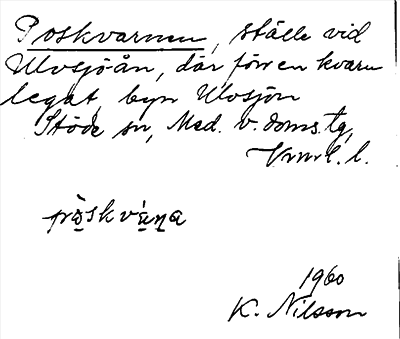 Poskvarnen, ställe vid
Ulvsjöån, där förr en kvarn
legat, byn Ulvsjön
Stöde sn, Med. v. doms. tg,
Vrnrl. l.
1960
K. Nilsson